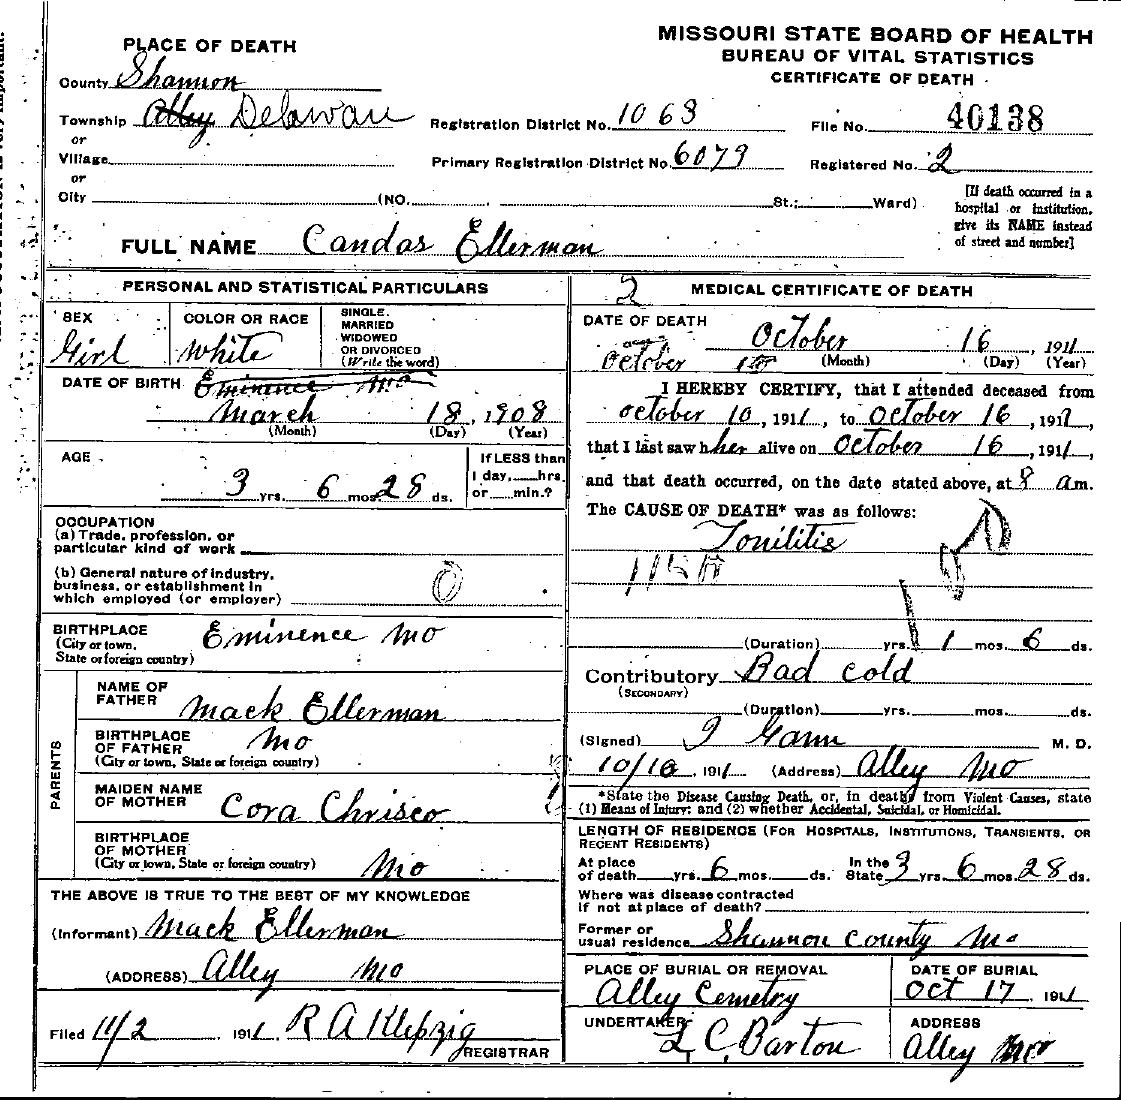 MISSOURI STATE BOARD OF HEALTH
BUREAU OF VITAL STATISTICS
CERTIFICATE OF DEATH
PLACE OF DEATH
County Shannon
Township Alley Delawau
or
Village
or
City (NO. St.; Ward)
Registration District No. 1063
File No. 40138
Primary Registration District No. 6079
Registered No. 2
[If death occurred in a
hospital or institution,
give its NAME instead
of street and number]
FULL NAME Candas Ellerman
PERSONAL AND STATISTICAL PARTICULARS
SEX
Girl
COLOR OR RACE
White
SINGLE,
MARRIED
WIDOWED
OR DIVORCED
(Write the word)
DATE OF BIRTH Eminence Mo
March 18, 1908
(Month) (Day) (Year)
AGE
3 yrs. 6 mos. 28 ds.
If LESS than
1 day, hrs.
or min.?
OCCUPATION
(a) Trade, profession, or
particular kind of work
(b) General nature of industry,
business, or establishment in
which employed (or employer)
BIRTHPLACE
(City or town,
State or foreign country)
Eminence Mo
PARENTS
NAME OF
FATHER
Mack Ellerman
BIRTHPLACE
OF FATHER
(City or town, State or foreign country)
Mo
MAIDEN NAME
OF MOTHER
Cora Chrisco
BIRTHPLACE
OF MOTHER
(City or town, State or foreign country)
Mo
THE ABOVE IS TRUE TO THE BEST OF MY KNOWLEDGE
(Informant) Mack Ellerman
(ADDRESS) Alley Mo
Filed 11/2, 1911 R A Klepzig
REGISTRAR
2 MEDICAL CERTIFICATE OF DEATH
DATE OF DEATH October 16, 1911
October
(Month) (Day) (Year)
I HEREBY CERTIFY, that I attended deceased from
October 10, 1911, to October 16, 1911,
that I last saw her alive on October 16, 1911,
and that death occurred, on the date stated above, at 8 am.
The CAUSE OF DEATH* was as follows:
Tonilitis
115A
(Duration) yrs. 1 mos. 6 ds.
Contributory Bad cold
(SECONDARY)
(Duration) yrs. mos. ds.
(Signed) Gann M. D.
10/16, 1911 (Address) Alley Mo
*State the Disease Causing Death, or, in deaths from Violent Causes, state
(1) Means of Injury; and (2) whether Accidental, Suicidal, or Homicidal.
LENGTH OF RESIDENCE (FOR HOSPITALS, INSTITUTIONS, TRANSIENTS, OR
RECENT RESIDENTS)
At place
of death yrs. 6 mos. ds.
In the
State 3 yrs. 6 mos. 28 ds.
Where was disease contracted
if not at place of death?
Former or
usual residence Shannon County Mo
PLACE OF BURIAL OR REMOVAL
Alley Cemetry
DATE OF BURIAL
Oct 17, 1911
UNDERTAKER
L C Barton
ADDRESS
Alley Mo